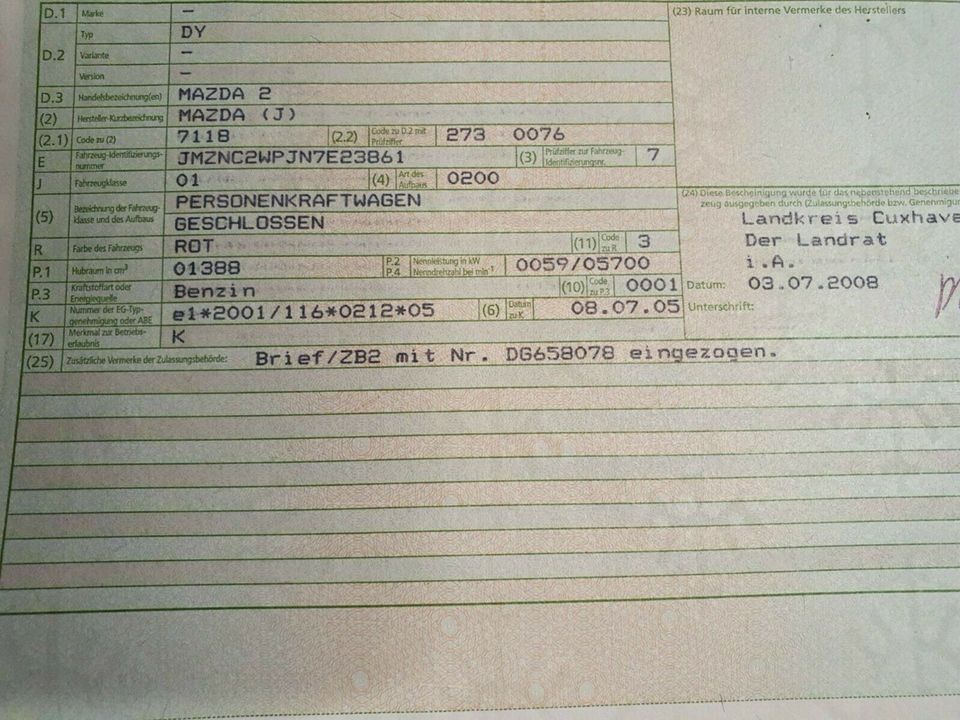 D.1 Marke –
(23) Raum für interne Vermerke des Herstellers
D.2 Typ DY
Variante –
Version –
D.3 Handelsbezeichnung(en) MAZDA 2
(2) Hersteller-Kurzbezeichnung MAZDA (J)
(2.1) Code zu (2) 7118 (2.2) Code zu D.2 mit Prüfziffer 273 0076
E Fahrzeug-Identifizierungs-nummer JMZNC2WPJN7E23861 (3) Prüfziffer zur Fahrzeug-Identifizierungsnr. 7
J Fahrzeugklasse 01 (4) Art des Aufbaus 0200
(5) Bezeichnung der Fahrzeug-klasse und des Aufbaus PERSONENKRAFTWAGEN
GESCHLOSSEN
R Farbe des Fahrzeugs ROT (11) Code zu R 3
P.1 Hubraum in cm³ 01388 P.2 P.4 Nennleistung in kW Nenndrehzahl bei min⁻¹ 0059/05700
P.3 Kraftstoffart oder Energiequelle Benzin (10) Code zu P.3 0001
K Nummer der EG-Typ-genehmigung oder ABE e1*2001/116*0212*05 (6) Datum zu K 08.07.05
(17) Merkmal zur Betriebs-erlaubnis K
(24) Diese Bescheinigung wurde für das nebenstehend beschriebe
zeug ausgegeben durch (Zulassungsbehörde bzw. Genehmigun
Landkreis Cuxhave
Der Landrat
i.A.
Datum: 03.07.2008
Unterschrift:
(25) Zusätzliche Vermerke der Zulassungsbehörde: Brief/ZB2 mit Nr. DG658078 eingezogen.